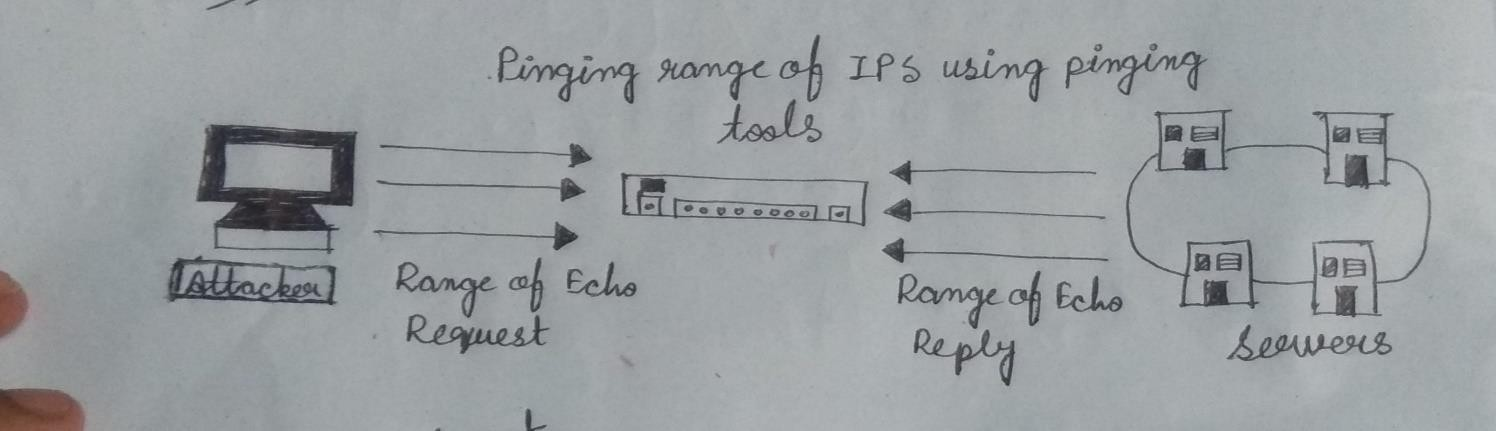 Pinging range of IPS using pinging
tools
Attacker
Range of Echo
Request
Range of Echo
Reply
Servers